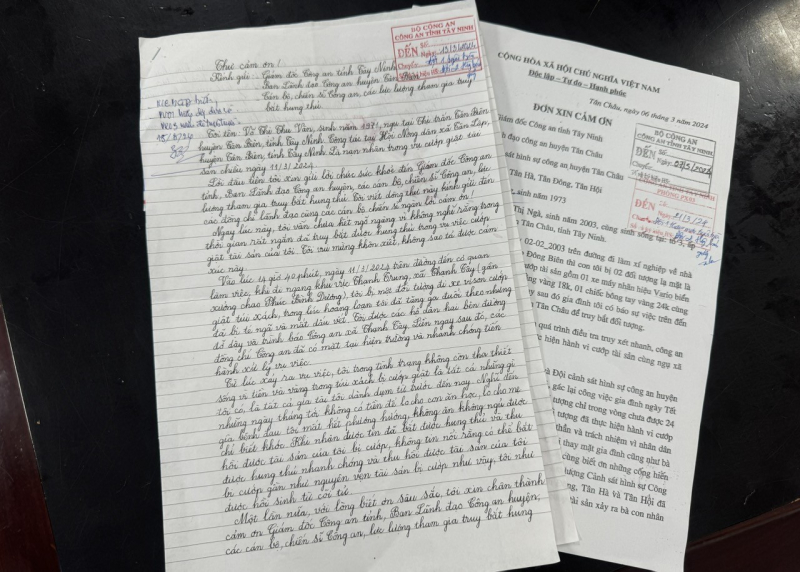 Thư cảm ơn!
Kính gửi: Giám đốc Công an tỉnh Tây Ninh
Ban Lãnh đạo Công an huyện Tân Biên
Cán bộ, chiến sĩ Công an, các lực lượng tham gia truy
bắt hung thủ
BỘ CÔNG AN
CÔNG AN TỈNH TÂY NINH
ĐẾN
Tôi tên Võ Thị Thu Vân, sinh năm 1971, ngụ tại Thị trấn Tân Biên
huyện Tân Biên, tỉnh Tây Ninh. Công tác tại Hội Nông dân xã Tân Lập,
huyện Tân Biên, tỉnh Tây Ninh. Là nạn nhân trong vụ cướp giật tài
sản chiều ngày 11/3/2024
Lời đầu tiên tôi xin gửi lời chúc sức khoẻ đến Giám đốc Công an
tỉnh, Ban Lãnh đạo Công an huyện, các cán bộ, chiến sĩ Công an, lực
lượng tham gia truy bắt hung thủ. Tôi viết dòng thư này kính gửi đến
các đồng chí lãnh đạo cùng các cán bộ chiến sĩ ngàn lời cảm ơn!
Ngay lúc này, tôi vẫn chưa hết ngỡ ngàng vì không nghĩ rằng trong
thời gian rất ngắn đã truy bắt được hung thủ trong vụ việc cướp
giật tài sản của tôi. Tôi vui mừng khôn xiết, không sao tả được cảm
xúc này.
Vào lúc 14 giờ 40 phút, ngày 11/3/2024 trên đường đến cơ quan
làm việc, khi đi ngang khu vực Thạnh Trung, xã Thạnh Tây (gần
xưởng chao Phúc Bình Dương), tôi bị một đối tượng đi xe vison cướp
giật túi xách, trong lúc hoảng loạn tôi đã tăng ga đuổi theo nhưng
đã bị té ngã và mất dấu vết. Tôi được các hộ dân hai bên đường
đỡ dậy và trình báo Công an xã Thạnh Tây. Liền ngay sau đó, các
đồng chí Công an đã có mặt tại hiện trường và nhanh chóng tiến
hành xử lý vụ việc.
Từ lúc xảy ra vụ việc, tôi trong tình trạng không còn tha thiết
sống vì tiền và vàng trong túi xách bị cướp giật là tất cả những gì
tôi có, là tất cả gia tài tôi dành dụm từ trước đến nay. Nghĩ đến
những ngày tháng tới, không có tiền để lo cho con ăn học, lo cho mẹ
già bệnh đau tôi mất hết phương hướng, không ăn không ngủ được
chỉ biết khóc. Khi nhận được tin đã bắt được hung thủ và thu
hồi được tài sản của tôi bị cướp, không tin nổi rằng có thể bắt
được hung thủ nhanh chóng và thu hồi được tài sản của tôi
bị cướp gần như nguyên vẹn tài sản bị cướp như vậy, tôi như
được hồi sinh từ cõi tử.
Một lần nữa, với lòng biết ơn sâu sắc, tôi xin chân thành
cảm ơn Giám đốc Công an tỉnh, Ban Lãnh đạo Công an huyện,
các cán bộ, chiến sĩ Công an, lực lượng tham gia truy bắt hung
CỘNG HÒA XÃ HỘI CHỦ NGHĨA VIỆT NAM
Độc lập – Tự do – Hạnh phúc
Tân Châu, ngày 06 tháng 3 năm 2024
ĐƠN XIN CẢM ƠN
Giám đốc Công an tỉnh Tây Ninh
h đạo công an huyện Tân Châu
sát hình sự công an huyện
Tân Hà, Tân Đông, Tân Hội
BỘ CÔNG AN
CÔNG AN TỈNH TÂY NINH
ĐẾN
sinh năm 1973
Thị Ngà, sinh năm 2003, cùng sinh sống tại:
Tân Châu, tỉnh Tây Ninh.
02-02_2003 trên đường đi làm xí nghiệp về nhà
Đông Biên thì con tôi bị 02 đối tượng lạ mặt là
cướp tài sản gồm 01 xe máy nhãn hiệu Vario biển
vàng 18k, 01 chiếc bông tay vàng 24k cùng
y sau đó gia đình tôi có báo sự việc trên đến
Tân Châu để truy bắt đối tượng.
quá trình điều tra truy xét nhanh, công an
c hiện hành vi cướp tài sản cùng
và Đội cảnh sát hình sự công an huyện
gác lại công việc gia đình ngày Tết
tượng chỉ trong vòng chưa được 24
tượng đã thực hiện hành vi cướp
thần và trách nhiệm vì nhân dân
thay mặt gia đình cũng như bà
cùng biết ơn những cống hiến
tượng Cảnh sát hình sự Công
ng, Tân Hà và Tân Hội đã
tài sản xảy ra bà con nhân